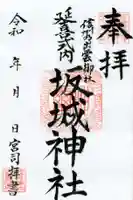 奉拝
信濃国出雲御社
延喜式内
坂城神社
令和 年 月 日
宮司拝書